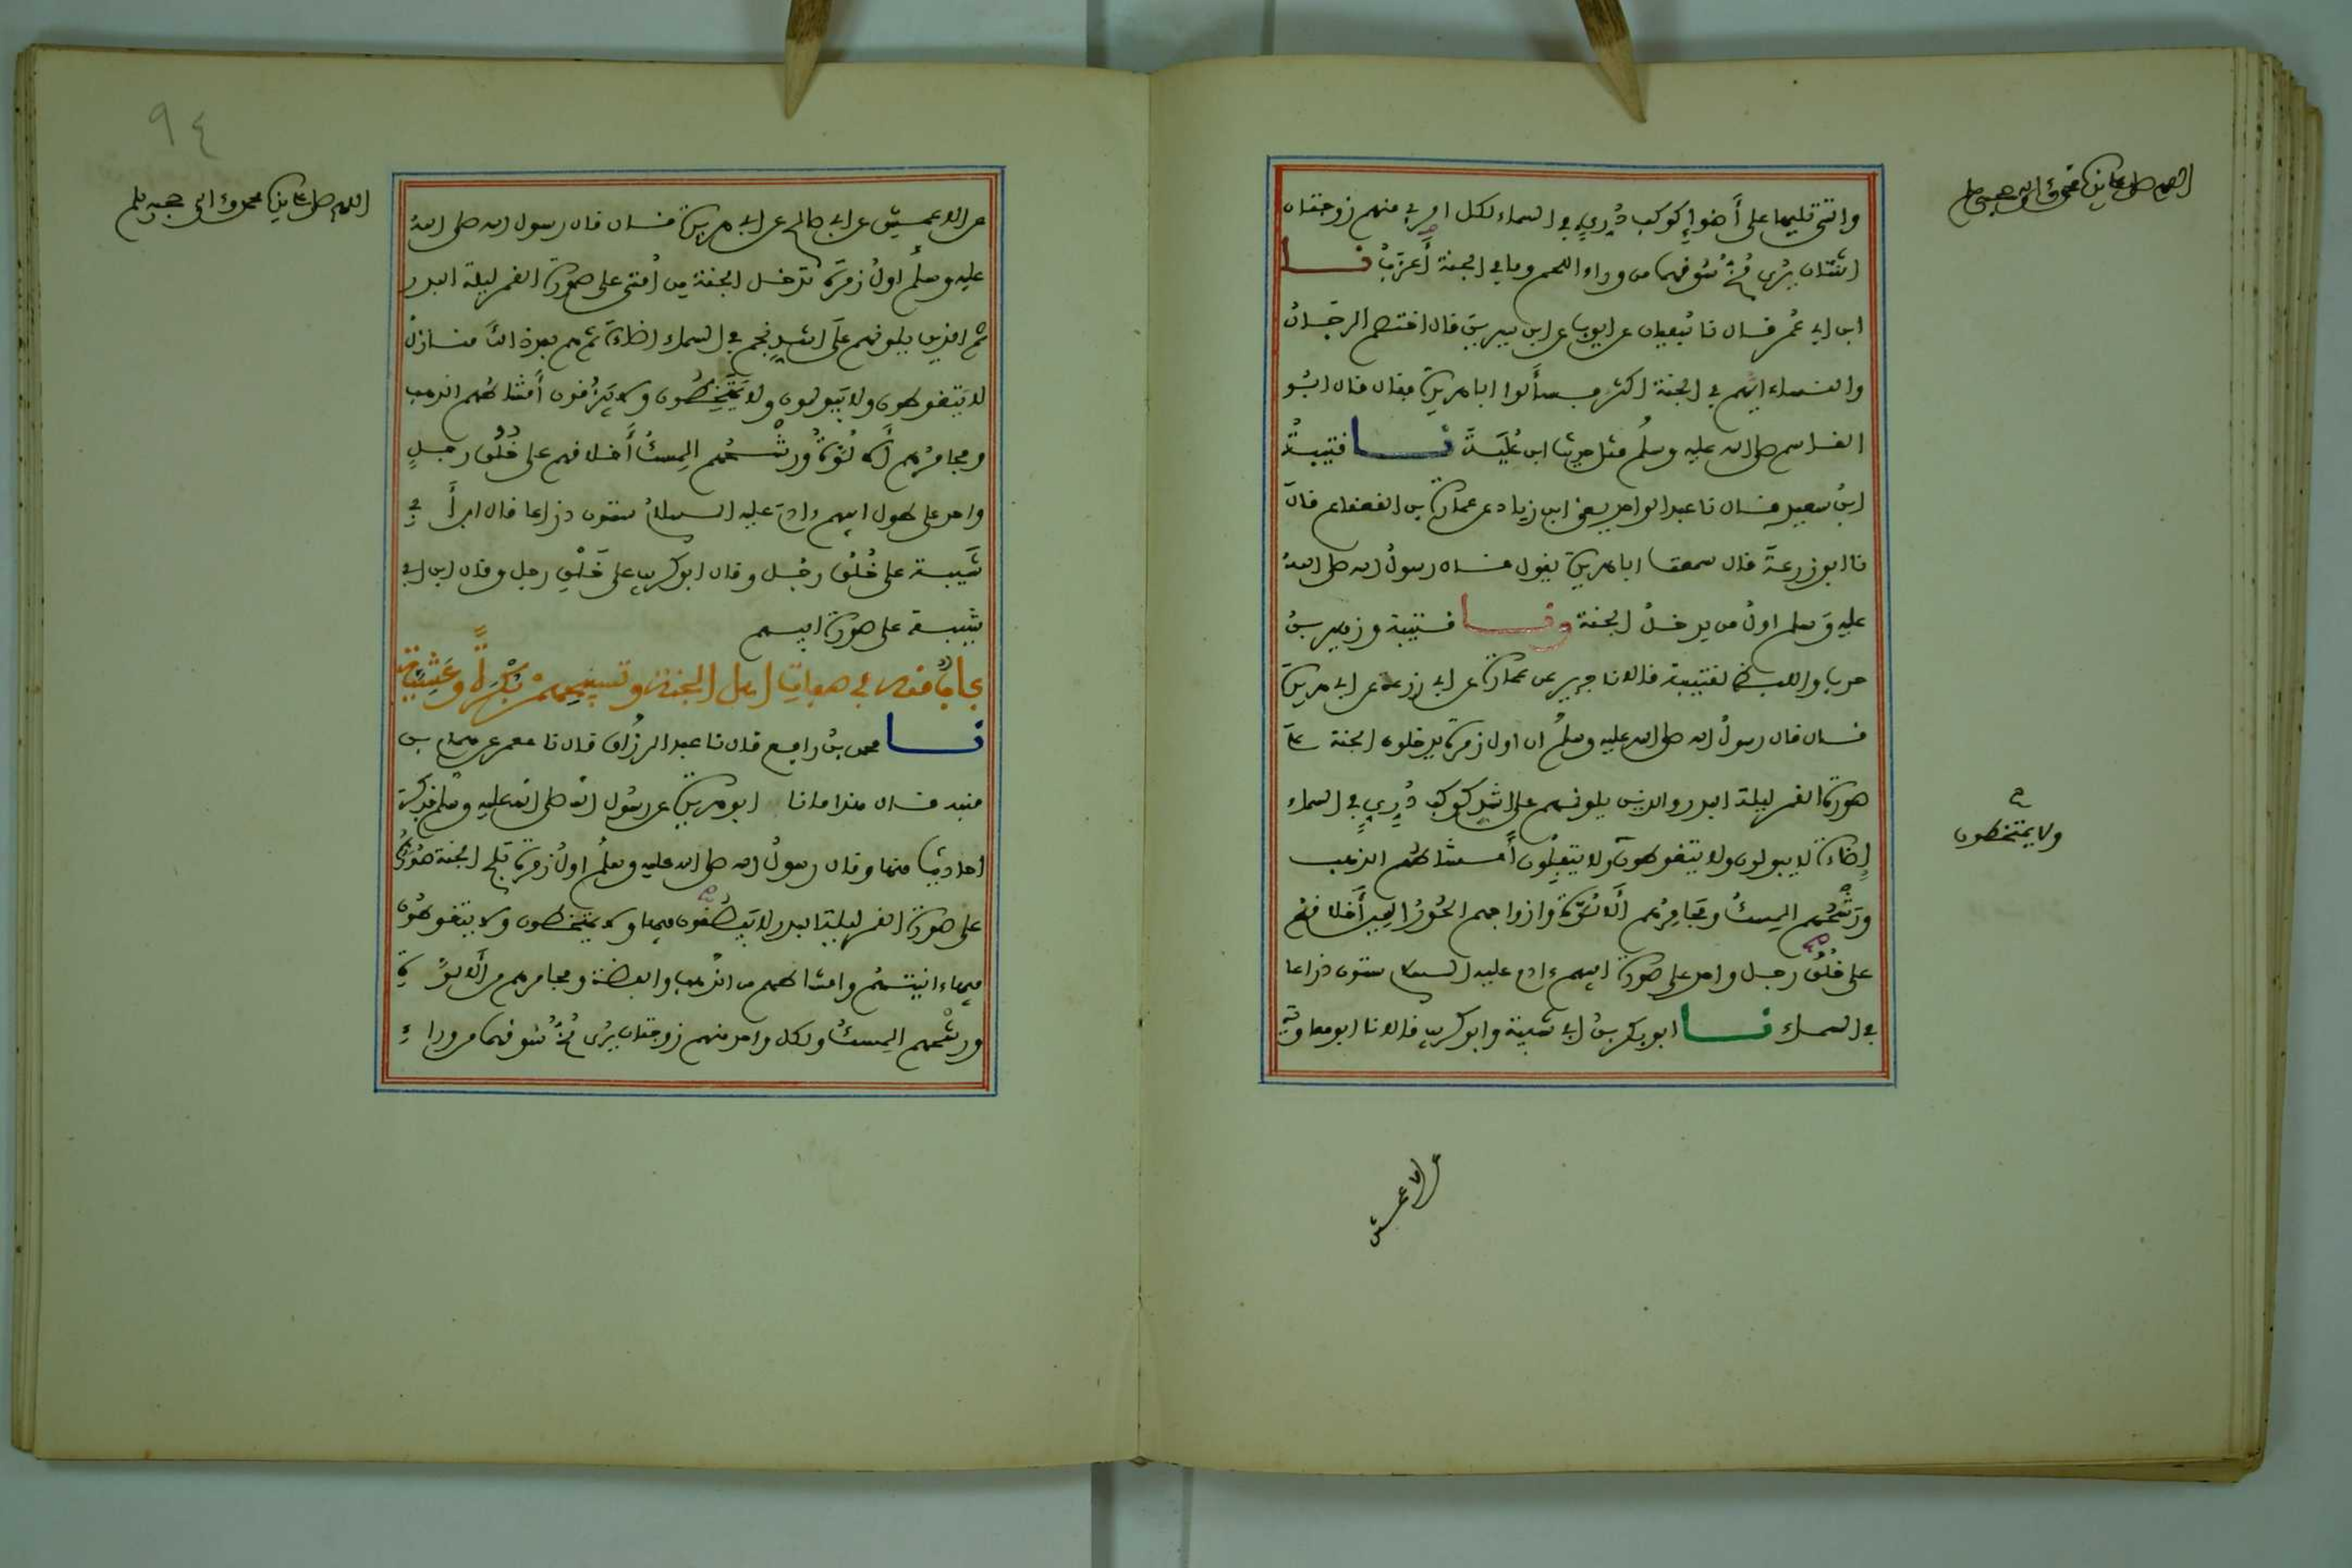 اللهم صل على سيدنا محمد وءاله وصحبه وسلم
والتى تليها على أضوإ كوكب دُرِيٍّ في السماء لكل امرئ منهم زوجتان
اثنتان يُرى مُخُّ سُوقهما من وراء اللحم وما في الجنة أَعزَبُ نا
ابن ابي عُمر قال نا سُفيان عن ايوب عن ابن سيرين قال اختصم الرجال
والنساء ايُّهم في الجنة اكثر فسألوا ابا هريرة فقال قال ابو
القاسم صلى الله عليه وسلم مثل حديث ابن عُلَيَّةَ نا قتيبةُ
ابنُ سعيد قال نا عبد الواحد يعني ابن زياد عن عمارة بن القعقاع قال
نا ابو زرعةَ قال سمعت ابا هريرة يقول قال رسولُ الله صلى اللهُ
عليه وسلم اولُ من يدخلُ الجنة ونا قتيبة وزهير بنُ
حرب واللفظ لقتيبة قالا نا جرير عن عمارة عن ابي زرعة عن ابي هريرة
قال قال رسولُ الله صلى الله عليه وسلم ان اول زمرة يدخلون الجنة على
صورة القمر ليلة البدر والذين يلونهم على اشد كوكب دُرِيٍّ في السماء
إضاءة لا يبولون ولا يتغوطون ولا يتفِلُون أمشاطُهُم الذهب
ولا يمتخطون
ورَشْحُهم المِسكُ ومجَامِرُهم أَلَا لُوَّةُ وازواجهم الحُورُ العِين أَخلاقهُم
على خُلُق رجل واحد على صورة ابيهم ءادم عليه السلام ستون ذراعا
في السماء نا ابو بكر بنُ ابي شيبة وابو كريب قالا نا ابو معاوية
عن الاعمش
٩٤
اللهم صل على سيدنا محمد وءاله وصحبه وسلم
عن الاعمش عن ابي صالح عن ابي هريرة قال قال رسول الله صلى اللهُ
عليه وسلم اولُ زمرة تدخل الجنة من أُمتى على صُورة القمر ليلة البدر
ثم الذين يلونهم على اشدِّ نجم في السماء إضاءة ثم هم بعد ذلك منازلُ
لا يتغوطون ولا يَبولون ولا يَمتَخِطُون ولا يَبْزُقون أَمشاطُهم الذهب
ومجامرُهم أَلا لُوَّةُ ورشْحُهم المِسكُ أَخلاقهم على خُلُق رجلٍ
واحد على طول ابيهم ءادمَ عليه السلامُ ستون ذراعا قال ابن أَبي
شَيبة على خُلُق رجُل وقال ابو كريب على خَلْقِ رجل وقال ابن ابي
شيبة على صورة ابيهم
بابُ منه في صفاتِ اهل الجنة وتسبيحهم بُكْرةً وعَشِيًّا
نا محمد بنُ رافع قال نا عبد الرزاق قال نا معمر عن همام بن
منبه قال هذا ما نا ابو هريرة عن رسُول الله صلى الله عليه وسلم فذكر
احاديث منها وقال رسولُ الله صلى الله عليه وسلم اولُ زمرة تلج الجنة صُوَرُهُم
على صورة القمر ليلة البدر لا يَبصُقُون فيها ولا يمتخطون ولا يتغوطُون
فيها ءانيتُهُم وامشاطهم من الذهب والفضة ومجامرهم من أَلا لوَّة
ورشْحهم المِسكُ ولكل واحد منهم زوجتان يُرى مُخُّ سُوقهما من وراءِ